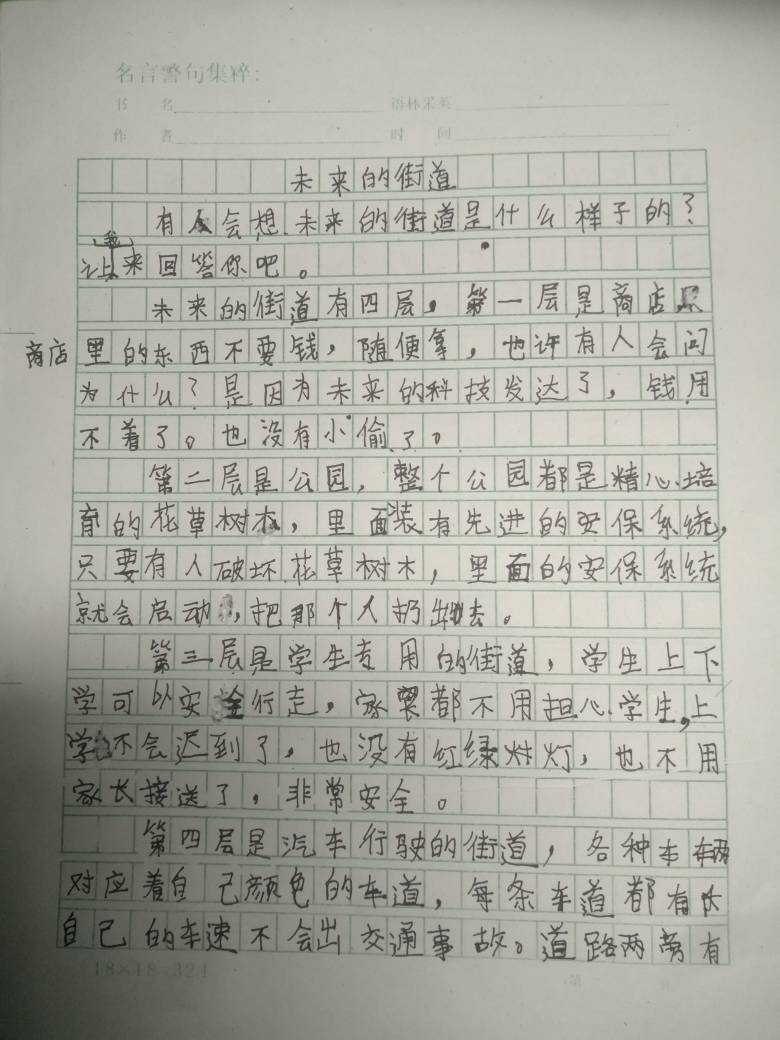 名言警句集粹：
书 名 语林采英
作 者 时 间
未来的街道
有人会想，未来的街道是什么样子的？
让(我)来回答你吧。
未来的街道有四层，第一层是商店
商店里的东西不要钱，随便拿，也许有人会问
为什么？是因为未来的科技发达了，钱用
不着了。也没有小偷了。
第二层是公园，整个公园都是精心培
育的花草树木，里面装有先进的安保系统，
只要有人破坏花草树木，里面的安保系统
就会启动，把那个人扔出去。
第三层是学生专用的街道，学生上下
学可以安全行走，家长都不用担心学生，上
学不会迟到了，也没有红绿灯，也不用
家长接送了，非常安全。
第四层是汽车行驶的街道，各种车辆
对应着自己颜色的车道，每条车道都有
自己的车速不会出交通事故。道路两旁有
18×18=324
第 页